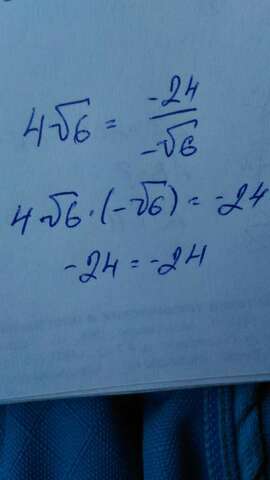 4√6 = -24/-√6
4√6·(-√6) = -24
-24 = -24